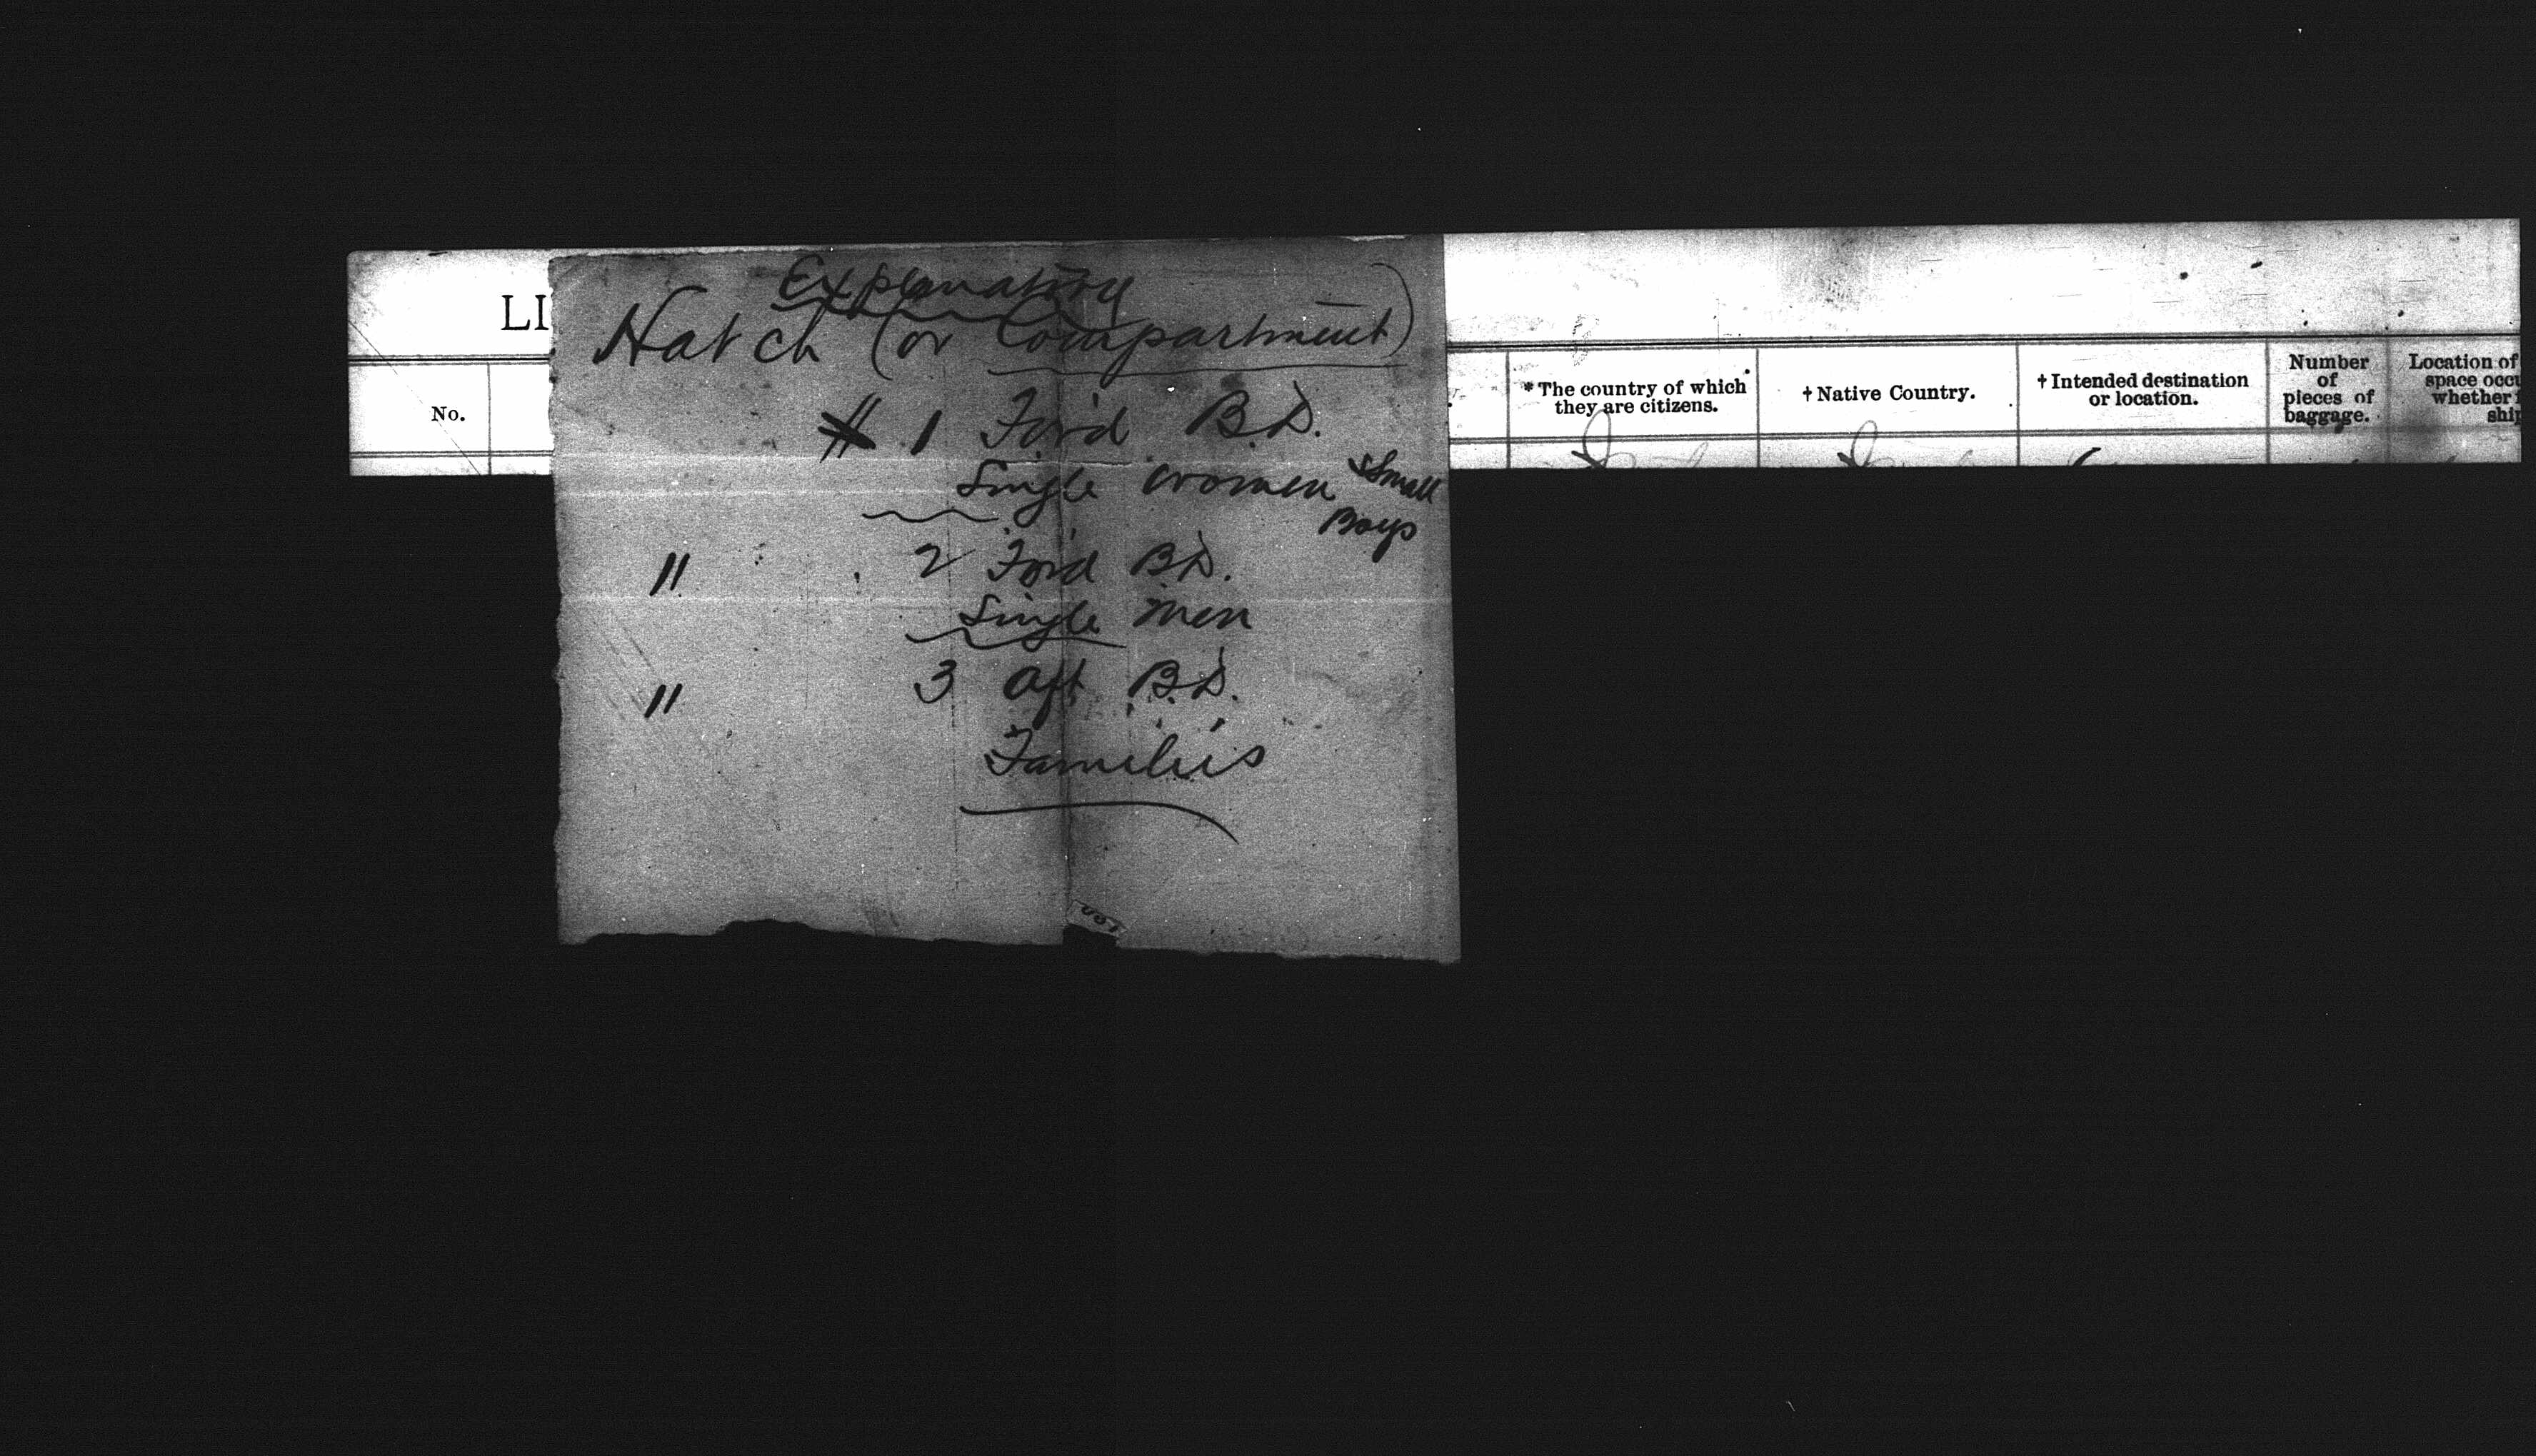 Explanatory
Hatch (or Compartment)
# 1 For'd B.D.
Single women & Small
Boys
" 2 For'd B.D.
Single men
" 3 Aft B.D.
Families
LI
No.
* The country of which
they are citizens.
† Native Country.
† Intended destination
or location.
Number
of
pieces of
baggage.
Location of
space occu
whether f
ship